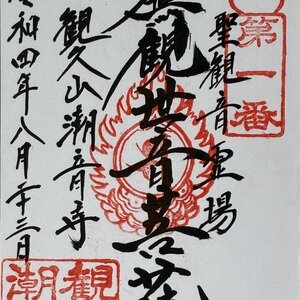 第一番
聖観音霊場
観世音菩薩
観久山潮音寺
令和四年八月二十三日
観潮